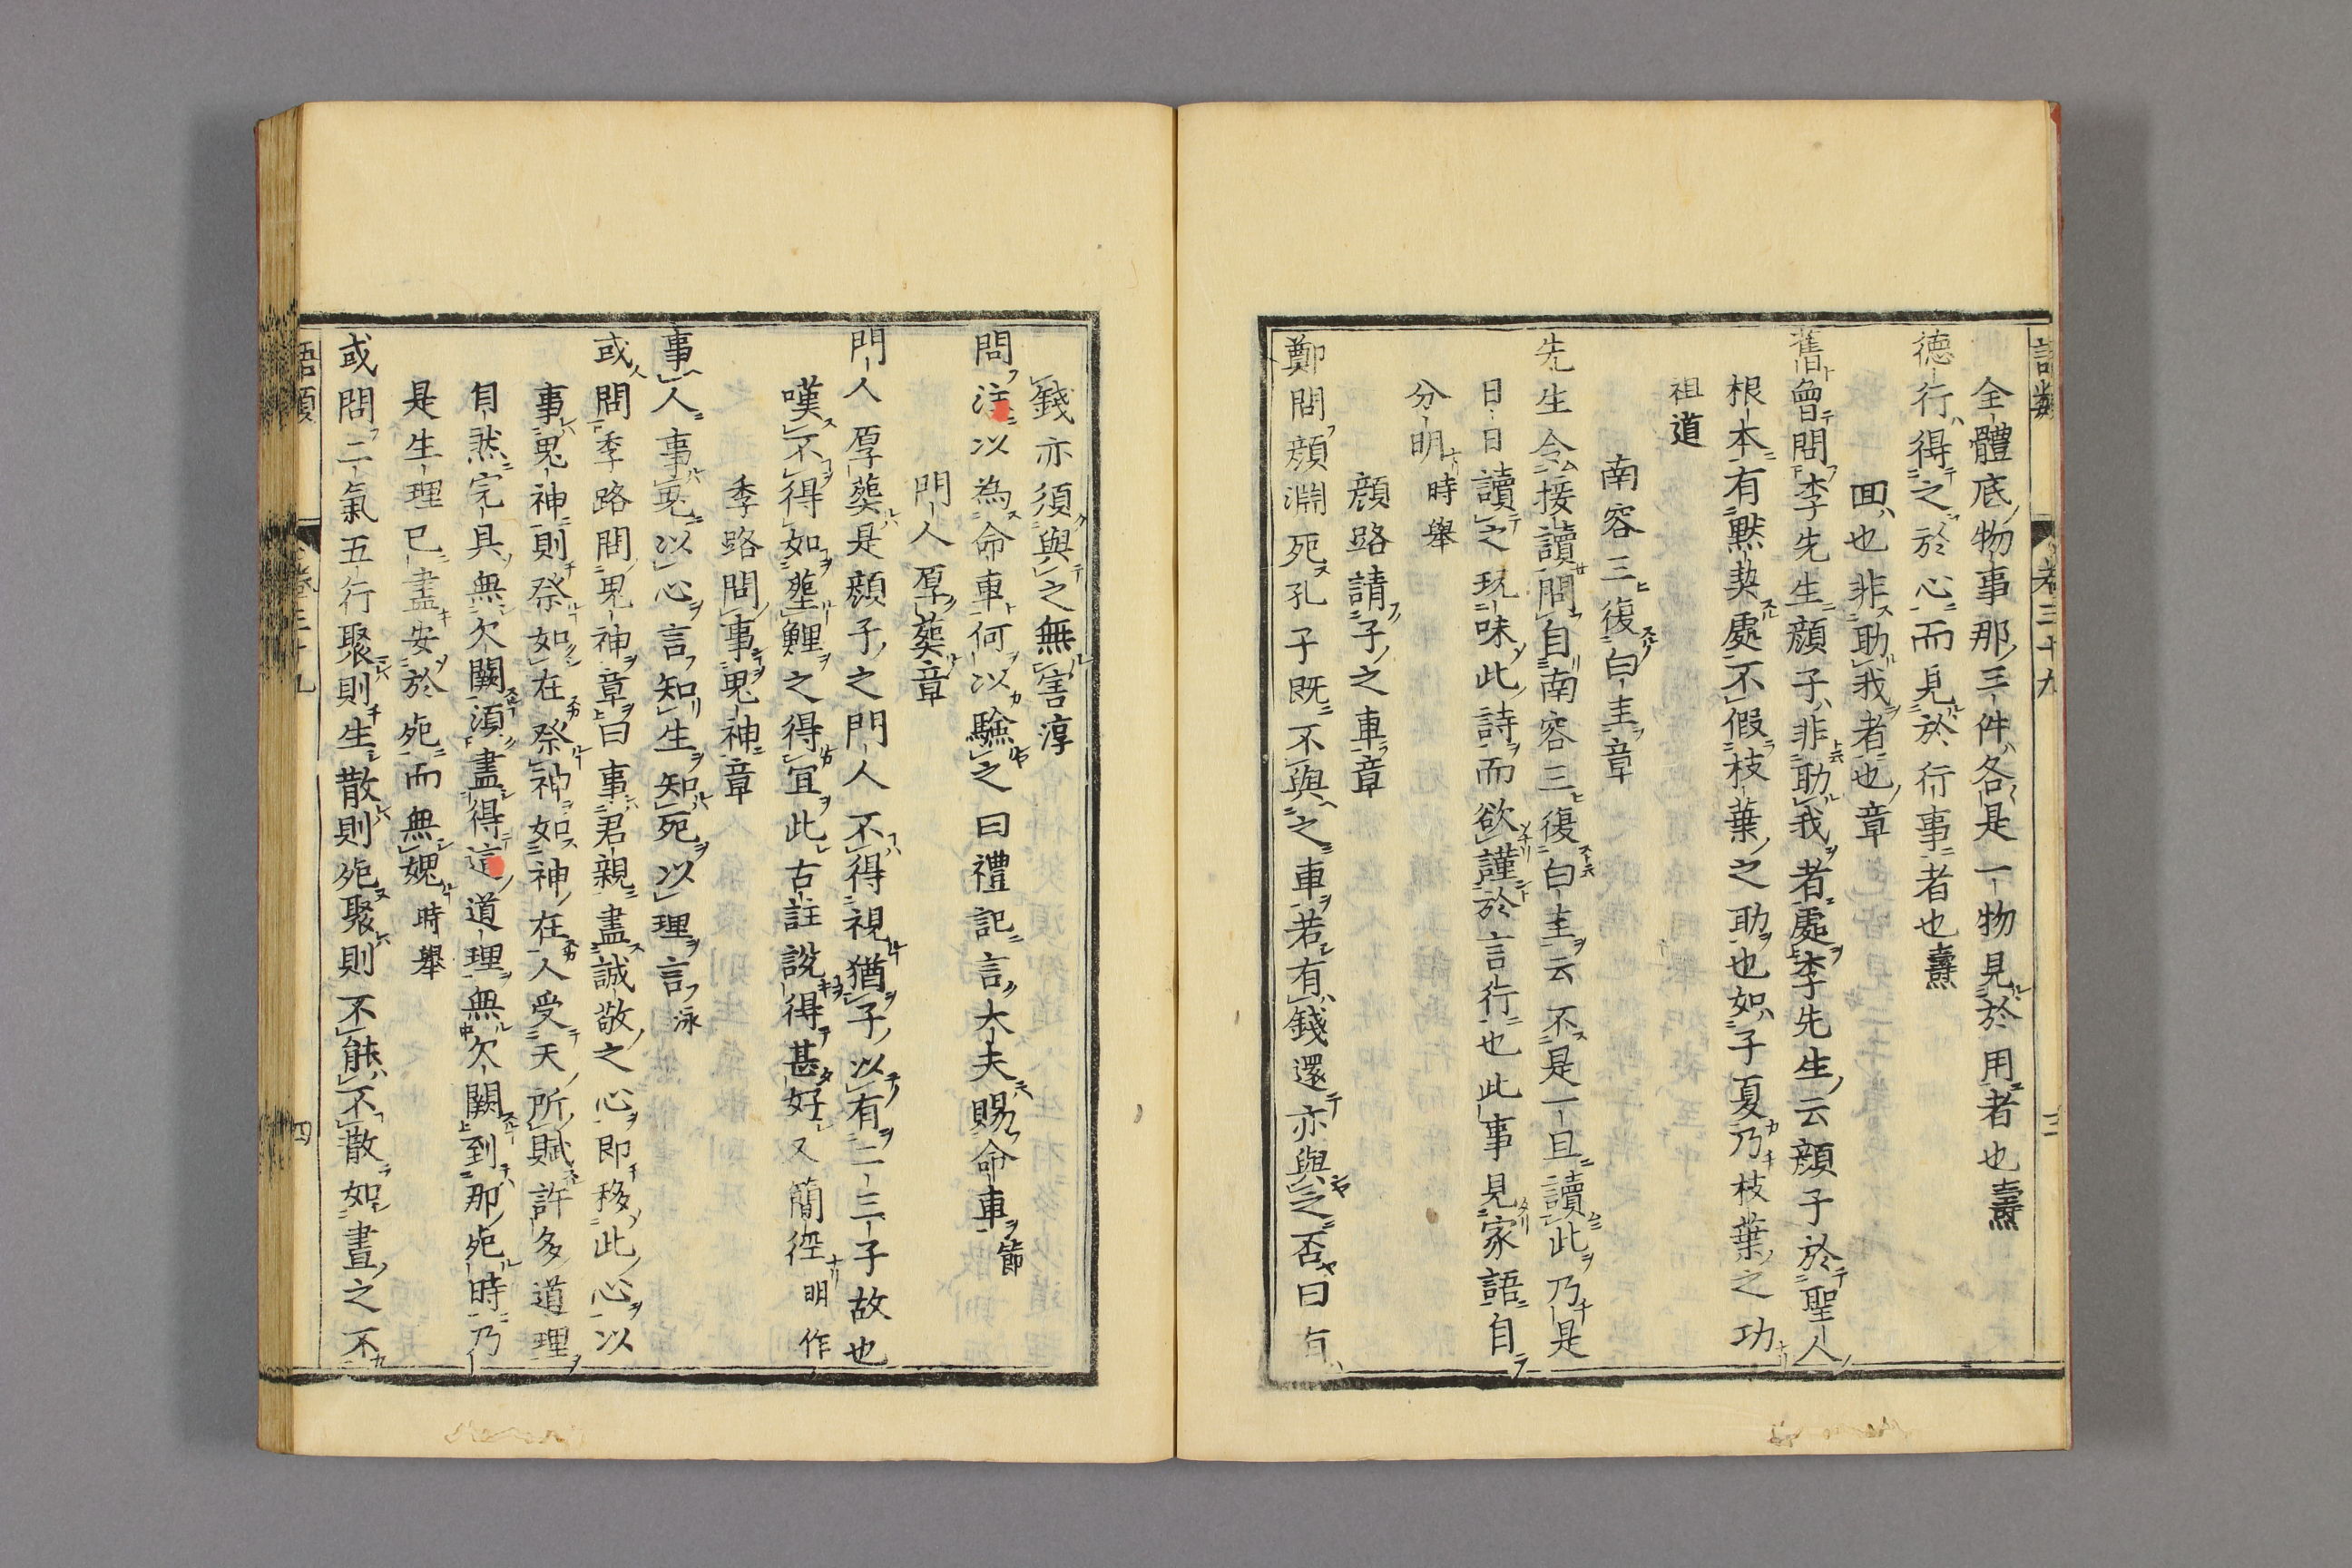 語類 卷三十九 三
全體底物事那三件各是一物見於用者也燾
德行得之於心而見於行事者也燾
回也非助我者也章
舊曾問李先生顏子非助我者處李先生云顏子於聖人
根本有默契處不假枝葉之助也如子夏乃枝葉之功
祖道
南容三復白圭章
先生令接讀問自南容三復白圭云不是一旦讀此乃是
日日讀之玩味此詩而欲謹於言行也此事見家語自
分明時舉
顏路請子之車章
鄭問顏淵死孔子既不與之車若有錢還亦與之否曰有
錢亦須與之無害淳
問注以為命車何以驗之曰禮記言大夫賜命車節
門人厚葬章
門人厚葬是顏子之門人不得視猶子以有二三子故也
嘆不得如塟鯉之得宜此古註說得甚好又簡徑明作
季路問事鬼神章
事人事鬼以心言知生知死以理言泳
或問季路問鬼神章曰事君親盡誠敬之心即移此心以
事鬼神則祭如在祭神如神在人受天所賦許多道理
自然完具無欠闕須盡得這道理無欠闕到那死時乃
是生理已盡安於死而無愧時舉
或問二氣五行聚則生散則死聚則不能不散如晝之不
語類 卷三十九 四